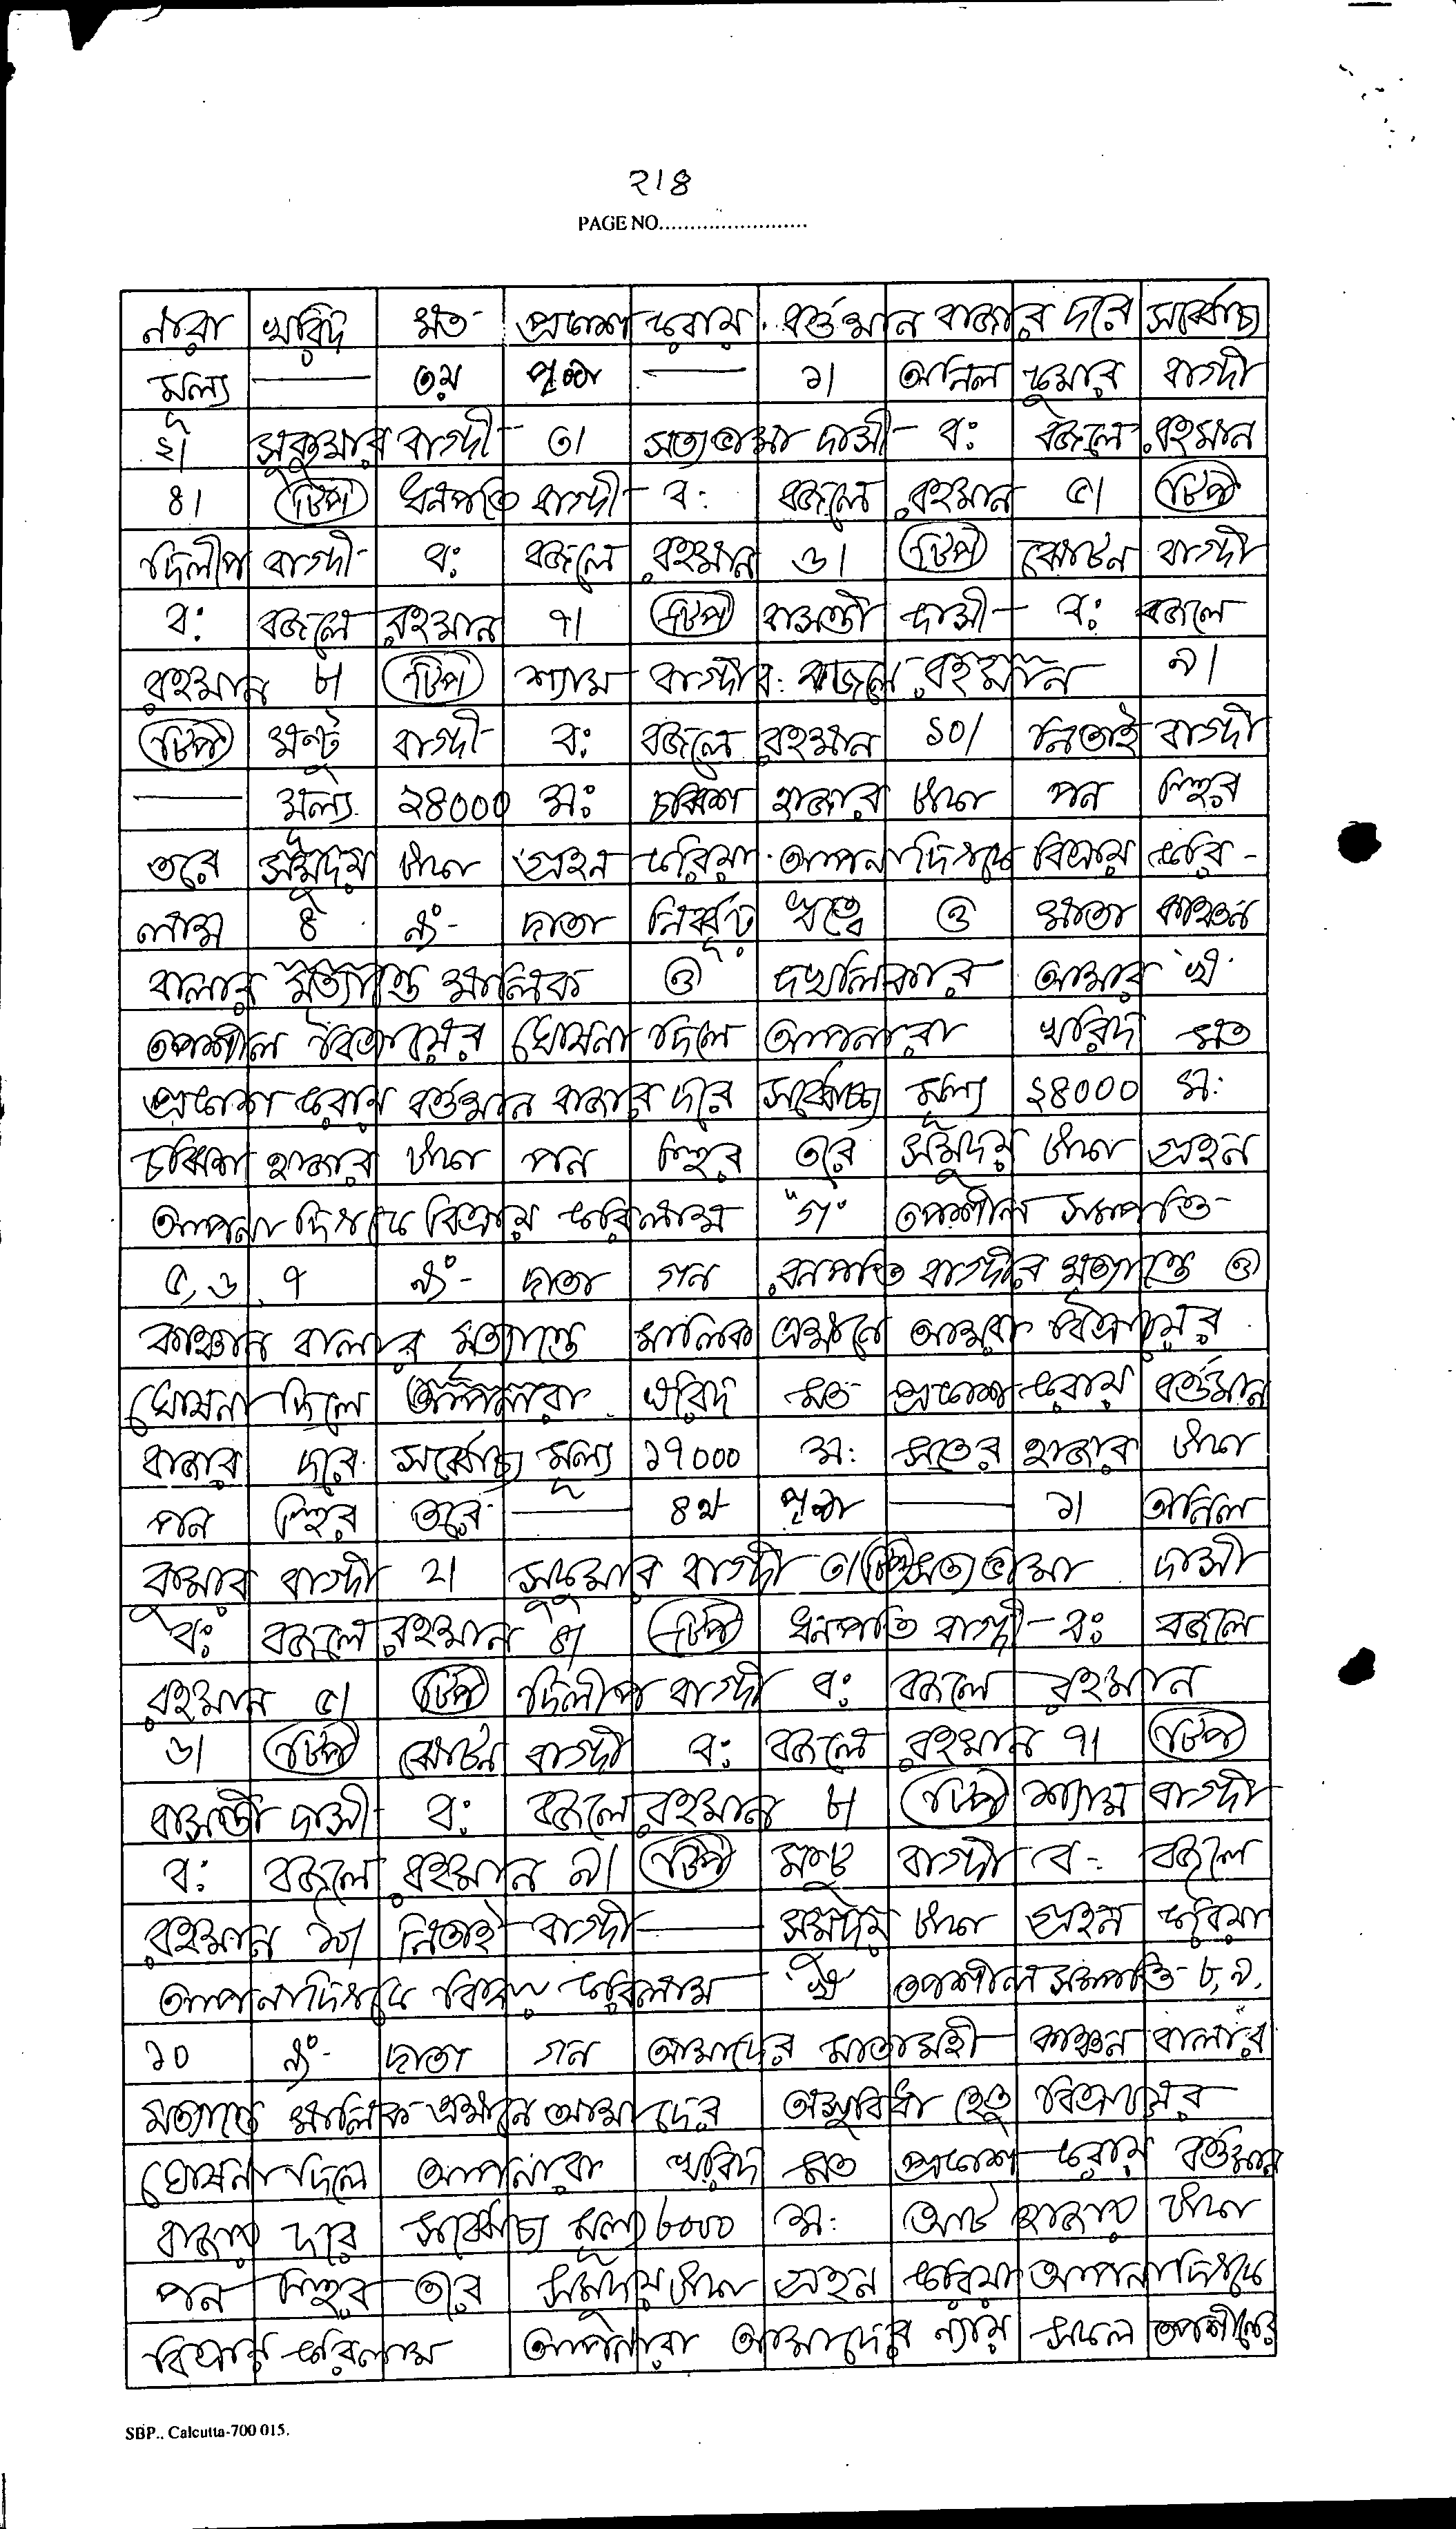 ২১৪
PAGE NO........................
নারা খরিদ মত প্রকাশ করায় বর্ত্তমান বাজার দরে সর্ব্বোচ্চ
মূল্য — ৩য় পৃষ্ঠা — ১। অনিল কুমার বাগ্দী
২। সুকুমার বাগ্দী ৩। সত্যভামা দাসী ব: বজলে রহমান
৪। টিপ ধনপতি বাগ্দী ব: বজলে রহমান ৫। টিপ
দিলীপ বাগ্দী ব: বজলে রহমান ৬। টিপ ঝোটন বাগ্দী
ব: বজলে রহমান ৭। টিপ বাসন্তী দাসী ব: বজলে
রহমান ৮। টিপ শ্যাম বাগ্দী ব: বজলে রহমান ৯।
টিপ মন্টু বাগ্দী ব: বজলে রহমান ১০। নিতাই বাগ্দী
— মূল্য ২৪০০০ ম: চব্বিশ হাজার টাকা পন স্থির
তরে সমুদয় টাকা গ্রহন করিয়া আপনাদিগকে বিক্রয় করি-
লাম ৪ নং দাতা নির্ব্যূঢ় স্বত্বে ও মাতা কাঞ্চন
বালার মৃত্যান্তে মালিক ও দখলিকার আমার খ
তপশীল বিক্রয়ের ঘোষনা দিলে আপনারা খরিদ মত
প্রকাশ করায় বর্ত্তমান বাজার দরে সর্ব্বোচ্চ মূল্য ২৪০০০ ম:
চব্বিশ হাজার টাকা পন স্থির তরে সমুদয় টাকা গ্রহন
আপনাদিগকে বিক্রয় করিলাম "গ" তপশীল সম্পত্তি
৫, ৬, ৭ নং দাতা গন ধনপতি বাগ্দীর মৃত্যান্তে ও
কাঞ্চান বালার মৃত্যান্তে মালিক এক্ষনে আমরা বিক্রয়ের
ঘোষনা দিলে আপনারা খরিদ মত প্রকাশ করায় বর্ত্তমান
বাজার দরে সর্ব্বোচ্চ মূল্য ১৭০০০ ম: সতের হাজার টাকা
পন স্থির তরে — ৪র্থ পৃষ্ঠা — ১। অনিল
কুমার বাগ্দী ২। সুকুমার বাগ্দী ৩। টিপ সত্যভামা দাসী
ব: বজলে রহমান ৪। টিপ ধনপতি বাগ্দী ব: বজলে
রহমান ৫। টিপ দিলীপ বাগ্দী ব: বজলে রহমান
৬। টিপ ঝোটন বাগ্দী ব: বজলে রহমান ৭। টিপ
বাসন্তী দাসী ব: বজলে রহমান ৮। টিপ শ্যাম বাগ্দী
ব: বজলে রহমান ৯। টিপ মন্টু বাগ্দী ব: বজলে
রহমান ১০। নিতাই বাগ্দী — সমুদয় টাকা গ্রহন করিয়া
আপনাদিগকে বিক্রয় করিলাম খ তপশীল সম্পত্তি ৮, ৯,
১০ নং দাতা গন আমাদের মাতামহী কাঞ্চন বালার
মৃত্যান্তে মালিক এক্ষনে আমাদের অসুবিধা হেতু বিক্রয়ের
ঘোষনা দিলে আপনারা খরিদ মত প্রকাশ করায় বর্ত্তমান
বাজার দরে সর্ব্বোচ্চ মূল্য ৮০০০ ম: আট হাজার টাকা
পন স্থির তরে সমুদয় টাকা গ্রহন করিয়া আপনাদিগকে
বিক্রয় করিলাম আপনারা আমাদের ন্যায় সকল তপশীলের
SBP., Calcutta-700 015.